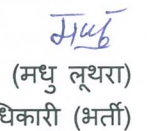 (मधु लूथरा)
धिकारी (भर्ती)